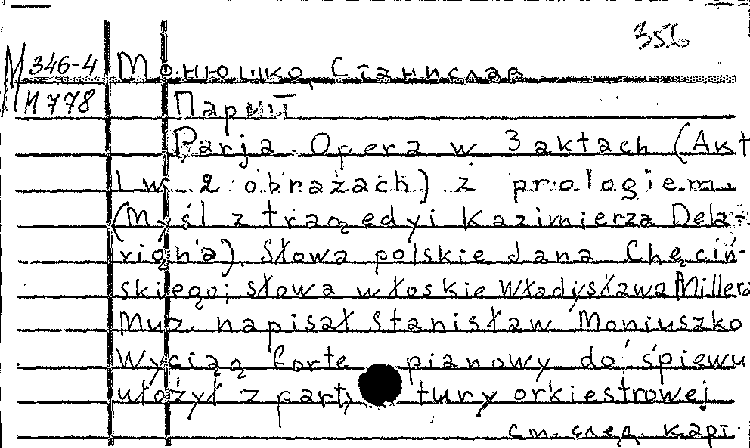 356
М 346-4 Монюшко, Станислав
М 778 Парий
Parja. Opera w 3 aktach (Akt
I w 2 obrazach) z prologiem.
(Myśl z tragedyi Kazimierza Dela-
vign'a). Słowa polskie Jana Chęciń-
skiego; słowa włoskie Władysława Millera
Muz. napisał Stanisław Moniuszko
Wyciąg forte pianowy do śpiewu
ułożył z party tury orkiestrowej
см. след. карт.